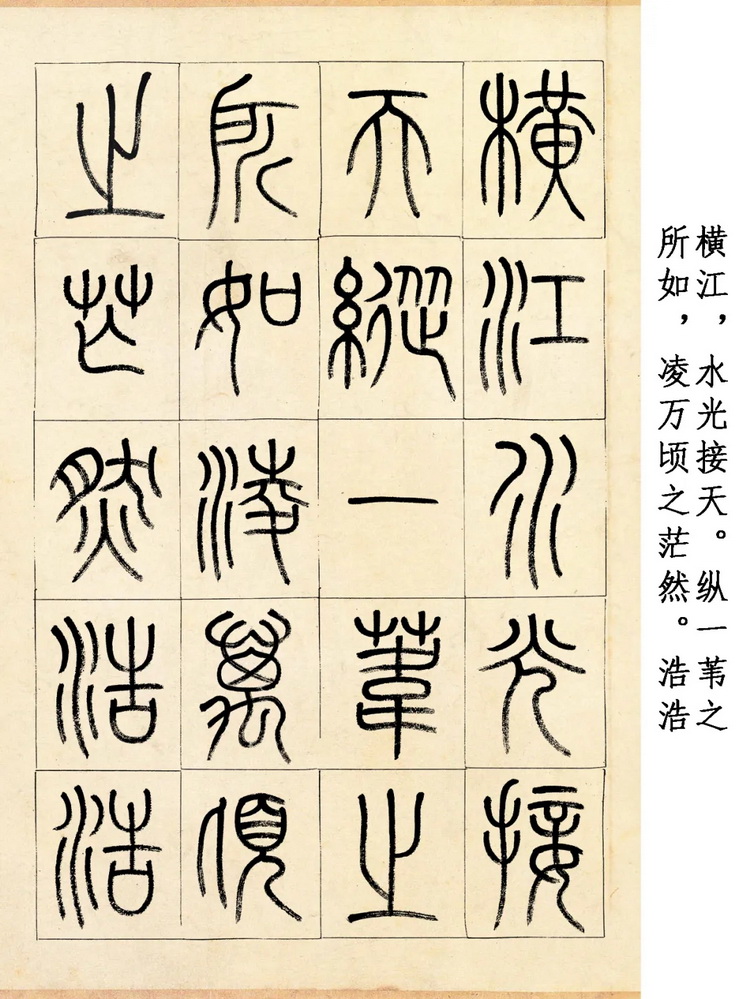 横江，水光接天。纵一苇之
所如，凌万顷之茫然。浩浩
橫江水光接
天縱一葦之
所如淩萬頃
之芒然浩浩